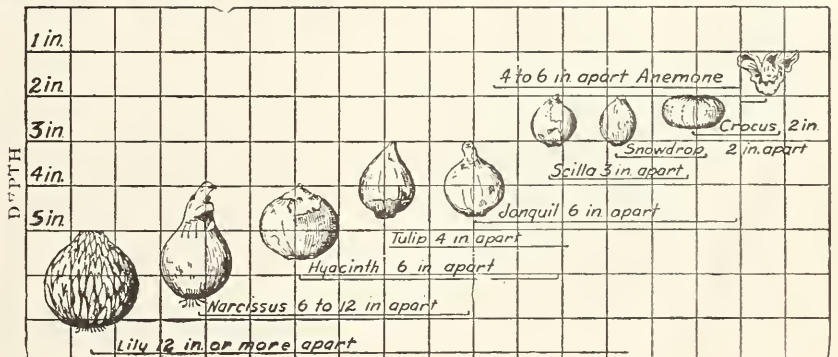 1 in.
2 in.
3 in.
4 in.
5 in.
DEPTH
4 to 6 in. apart Anemone
Crocus, 2 in.
Snowdrop, 2 in. apart
Scilla 3 in. apart
Jonquil 6 in apart
Tulip 4 in apart
Hyacinth 6 in apart
Narcissus 6 to 12 in apart
Lily 12 in. or more apart